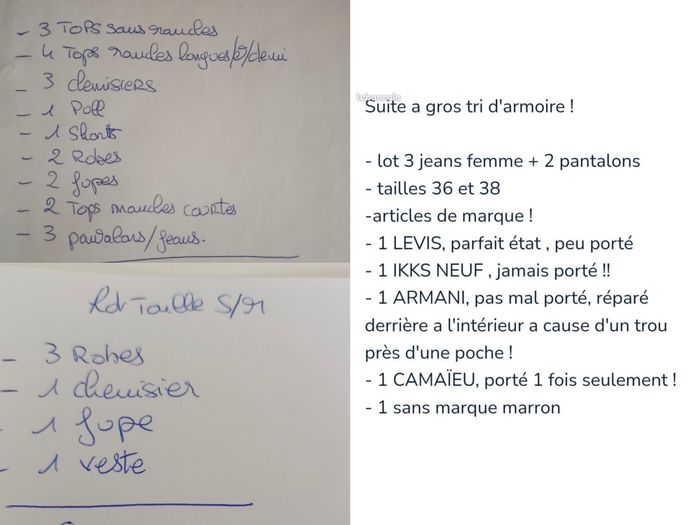 - 3 Tops sans manches
- 4 Tops manches longues/&/demi
- 3 chemisiers
- 1 Poll
- 1 Short
- 2 Robes
- 2 jupes
- 2 Tops manches courtes
- 3 pantalons/jeans.
Lot Taille S/M
- 3 Robes
- 1 chemisier
- 1 jupe
- 1 veste
leboncoin
Suite a gros tri d'armoire !
- lot 3 jeans femme + 2 pantalons
- tailles 36 et 38
-articles de marque !
- 1 LEVIS, parfait état , peu porté
- 1 IKKS NEUF , jamais porté !!
- 1 ARMANI, pas mal porté, réparé
derrière a l'intérieur a cause d'un trou
près d'une poche !
- 1 CAMAÏEU, porté 1 fois seulement !
- 1 sans marque marron